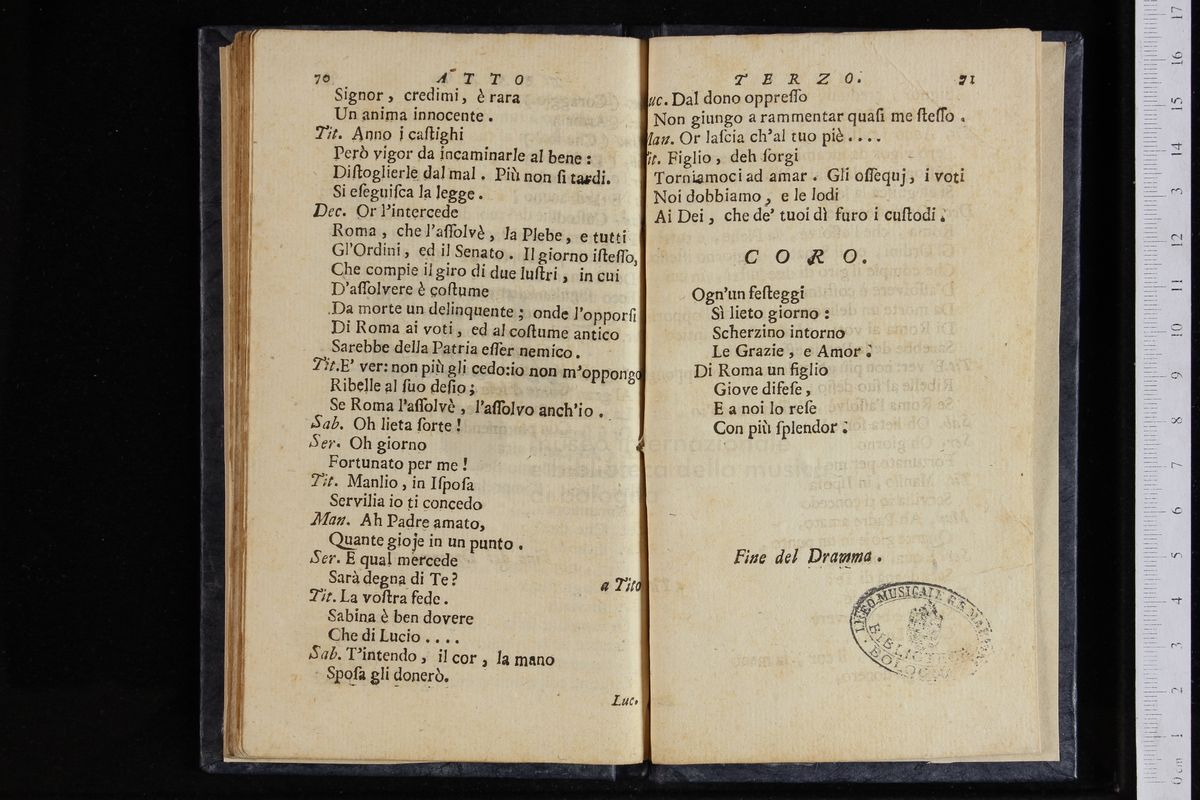 70 ATTO
Signor, credimi, è rara
Un anima innocente.
Tit. Anno i caſtighi
Però vigor da incaminarle al bene:
Diſtoglierle dal mal. Più non ſi tardi.
Si eſeguiſca la legge.
Dec. Or l'intercede
Roma, che l'aſſolvè, la Plebe, e tutti
Gl'Ordini, ed il Senato. Il giorno iſteſſo,
Che compie il giro di due luſtri, in cui
D'aſſolvere è coſtume
Da morte un delinquente; onde l'opporſi
Di Roma ai voti, ed al coſtume antico
Sarebbe della Patria eſſer nemico.
Tit. E' ver: non più gli cedo: io non m'oppongo
Ribelle al ſuo deſio;
Se Roma l'aſſolvè, l'aſſolvo anch'io.
Sab. Oh lieta ſorte!
Ser. Oh giorno
Fortunato per me!
Tit. Manlio, in Iſpoſa
Servilia io ti concedo
Man. Ah Padre amato,
Quante gioje in un punto.
Ser. E qual mercede
Sarà degna di Te? a Tito
Tit. La voſtra fede.
Sabina è ben dovere
Che di Lucio....
Sab. T'intendo, il cor, la mano
Spoſa gli donerò.
Luc.
TERZO. 71
uc. Dal dono oppreſſo
Non giungo a rammentar quaſi me ſteſſo.
Man. Or laſcia ch'al tuo piè....
it. Figlio, deh ſorgi
Torniamoci ad amar. Gli oſſequj, i voti
Noi dobbiamo, e le lodi
Ai Dei, che de' tuoi dì furo i cuſtodi.
CORO.
Ogn'un feſteggi
Sì lieto giorno:
Scherzino intorno
Le Grazie, e Amor.
Di Roma un figlio
Giove difeſe,
E a noi lo reſe
Con più ſplendor.
Fine del Dramma.
LICEO MUSICALE G.B. MARTINI
BIBLIOTECA
BOLOGNA
museo internazionale
e biblioteca della musica
di bologna